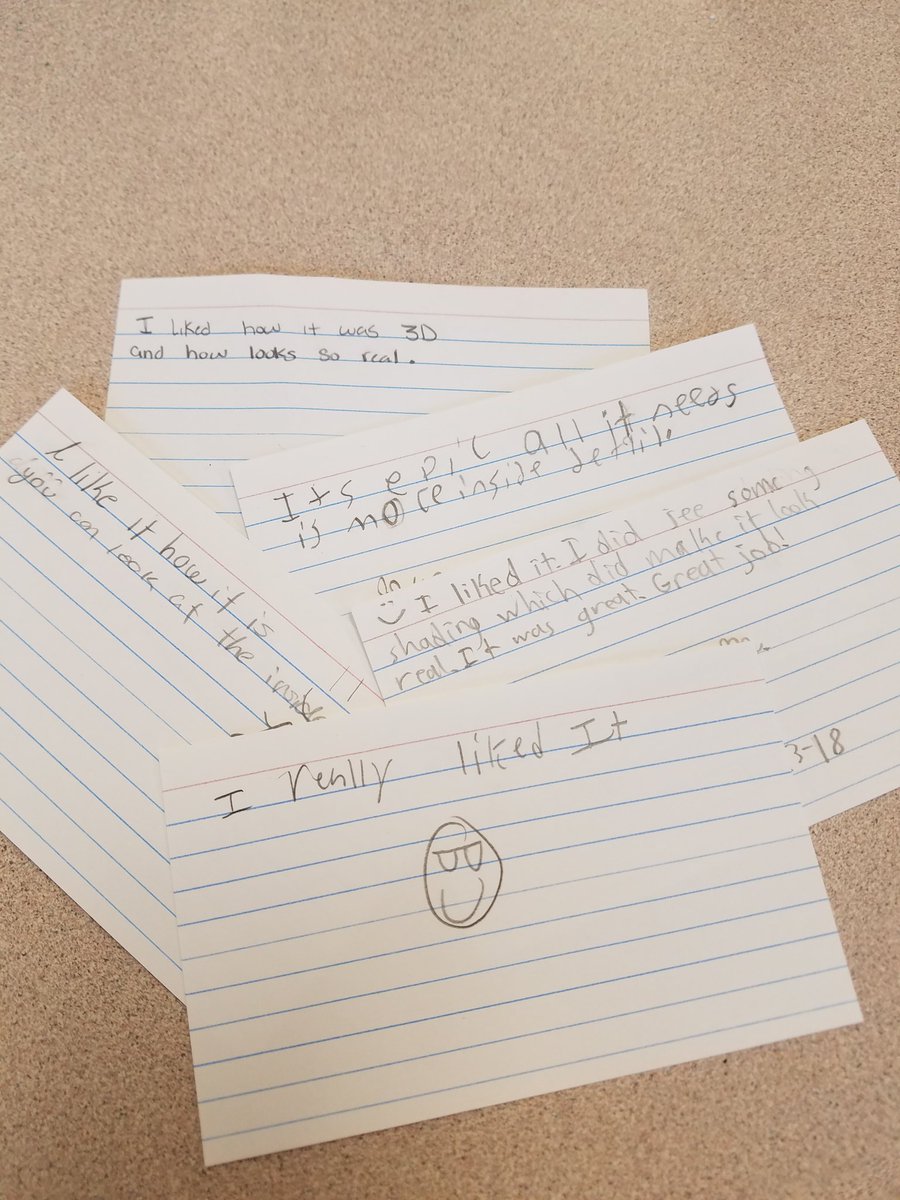 I liked how it was 3D
and how looks so real.
Its epic all it needs
is more inside detlil.
I liked it. I did see some
shading which did make it look
real. It was great. Great job!
3-18
I like it how it is
you can look at the inside
I really liked It